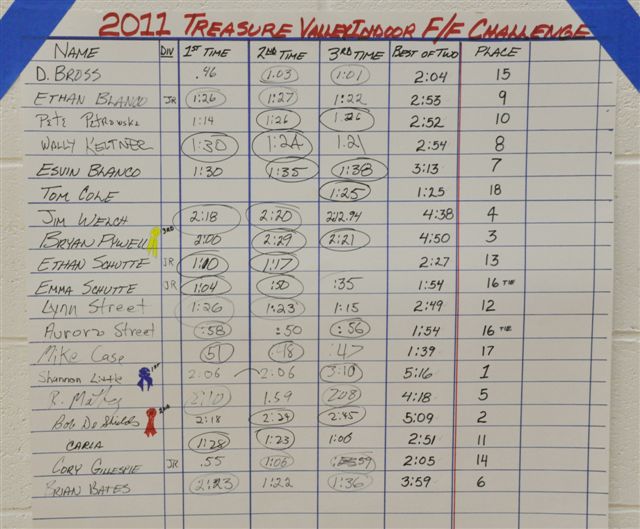 2011 TREASURE VALLEY INDOOR F/F CHALLENGE
NAME DIV 1ST TIME 2ND TIME 3RD TIME BEST OF TWO PLACE
D. BROSS .46 1:03 1:01 2:04 15
ETHAN BLANCO JR 1:26 1:27 1:22 2:53 9
PETE PETROWSKE 1:14 1:26 1.26 2:52 10
WALLY KELTNER 1:30 1:24 1.21 2:54 8
ESVIN BLANCO 1:30 1:35 1:38 3:13 7
TOM COLE 1:25 1:25 18
JIM WELCH 2:18 2:20 4:38 4
BRYAN PYWELL 3RD 2:00 2:29 2:21 4:50 3
ETHAN SCHUTTE JR 1:10 1:17 2:27 13
EMMA SCHUTTE JR 1:04 :50 :35 1:54 16 TIE
Lynn Street 1:26 1:23 1:15 2:49 12
Aurora Street :58 :50 :56 1:54 16 TIE
Mike Case :51 :48 :47 1:39 17
Shannon Little 1ST 2:06 2:06 3:10 5:16 1
R. 2:10 1.59 208 4:18 5
Bob DeShields 2nd 2:18 2:24 2:45 5:09 2
CARIA 1:28 1:23 1:00 2:51 11
CORY GILLESPIE JR .55 1:06 :59 2:05 14
BRIAN BATES 2:23 1:22 1:36 3:59 6